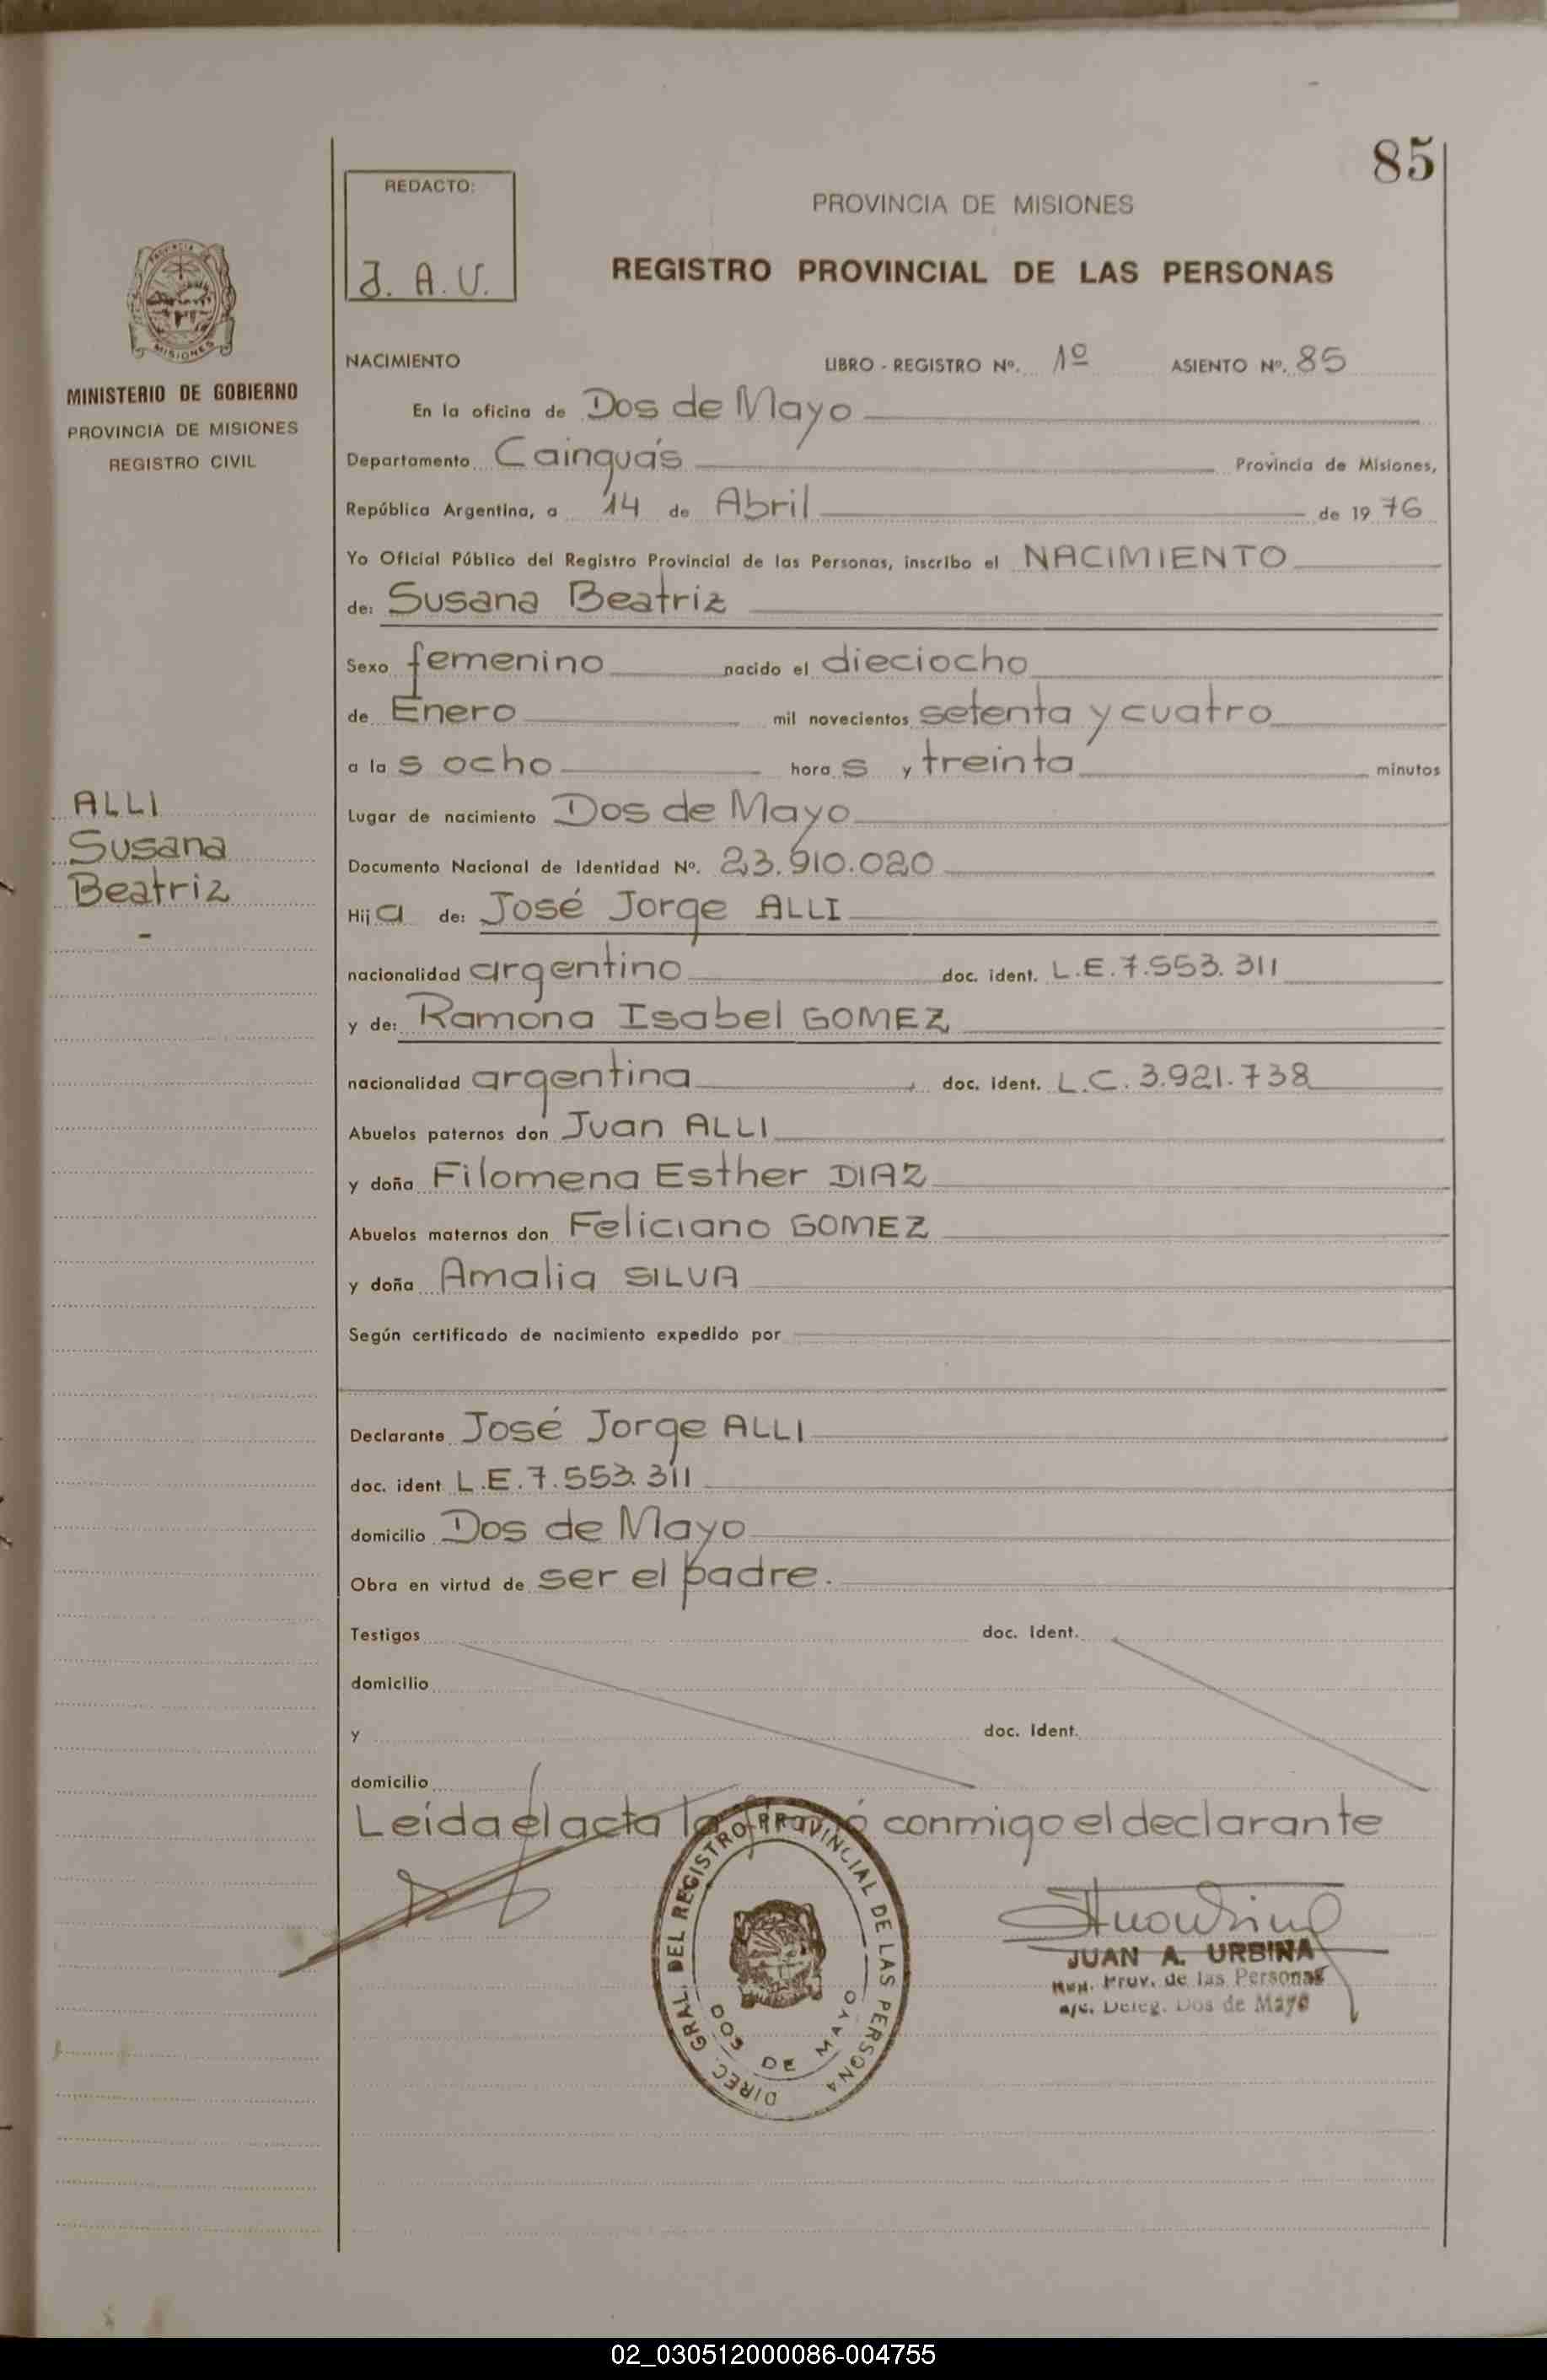 85
REDACTO:
J. A. U.
PROVINCIA DE MISIONES
REGISTRO PROVINCIAL DE LAS PERSONAS
PROVINCIA DE
MISIONES
MINISTERIO DE GOBIERNO
PROVINCIA DE MISIONES
REGISTRO CIVIL
ALLI
Susana
Beatriz
-
NACIMIENTO LIBRO - REGISTRO Nº. 1º ASIENTO Nº. 85
En la oficina de Dos de Mayo
Departamento Cainguás Provincia de Misiones,
República Argentina, a 14 de Abril de 1976
Yo Oficial Público del Registro Provincial de las Personas, inscribo el NACIMIENTO
de: Susana Beatriz
Sexo femenino nacido el dieciocho
de Enero mil novecientos setenta y cuatro
a las ocho horas y treinta minutos
Lugar de nacimiento Dos de Mayo
Documento Nacional de Identidad Nº. 23.910.020
Hija de: José Jorge ALLI
nacionalidad argentino doc. ident. L.E.7.553.311
y de: Ramona Isabel GOMEZ
nacionalidad argentina, doc. ident. L.C. 3.921.738
Abuelos paternos don Juan ALLI
y doña Filomena Esther DIAZ
Abuelos maternos don Feliciano GOMEZ
y doña Amalia SILVA
Según certificado de nacimiento expedido por
Declarante José Jorge ALLI
doc. ident L.E.7.553.311
domicilio Dos de Mayo
Obra en virtud de ser el padre.
Testigos doc. ident.
domicilio
y doc. ident.
domicilio
Leída el acta la firmó conmigo el declarante
DIREC. GRAL. DEL REGISTRO PROVINCIAL DE LAS PERSONA
DOS DE MAYO
JUAN A. URBINA
Prov. de las Personas
a/c. Deleg. Dos de Mayo
02_030512000086-004755